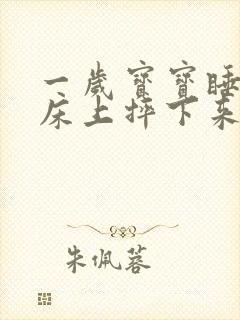 一歲寶寶睡
床上摔下來
朱佩蓉